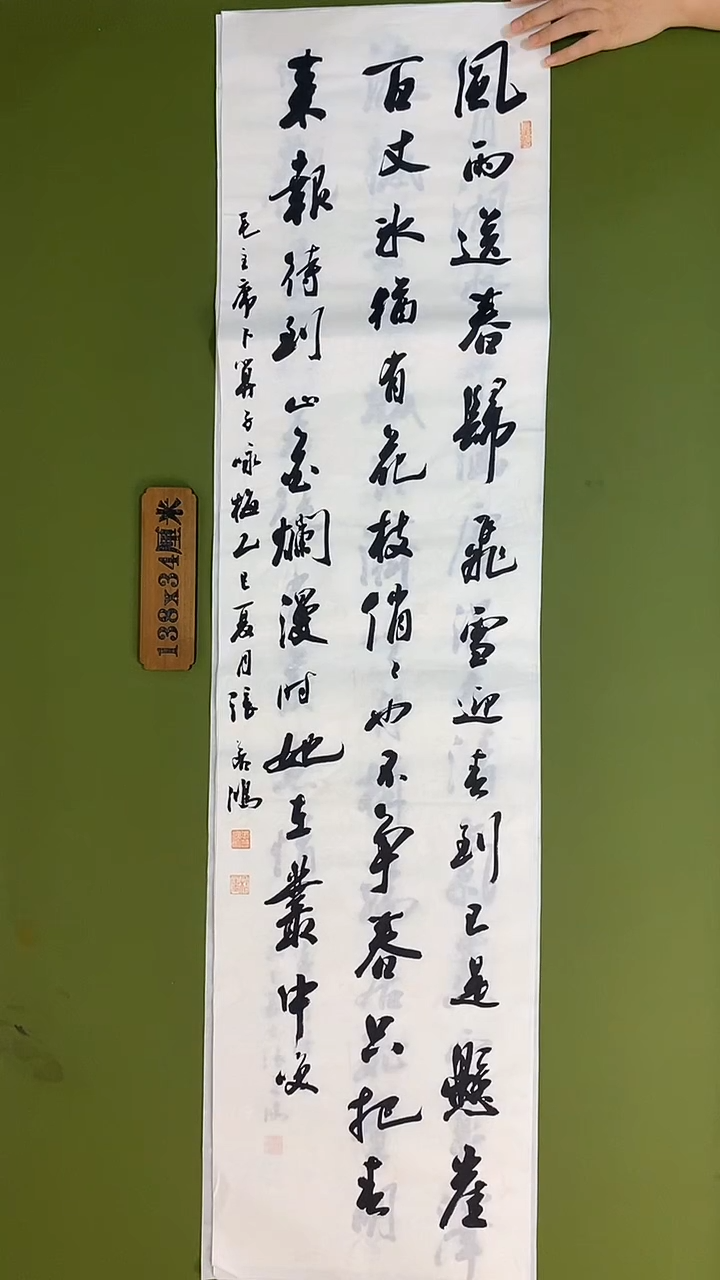 風雨送春歸飛雪迎春到已是懸崖
百丈冰猶有花枝俏〻也不爭春只把春
来報待到山花爛漫時她在叢中咲
毛主席卜算子咏梅乙巳夏月張鴻
138x34厘米